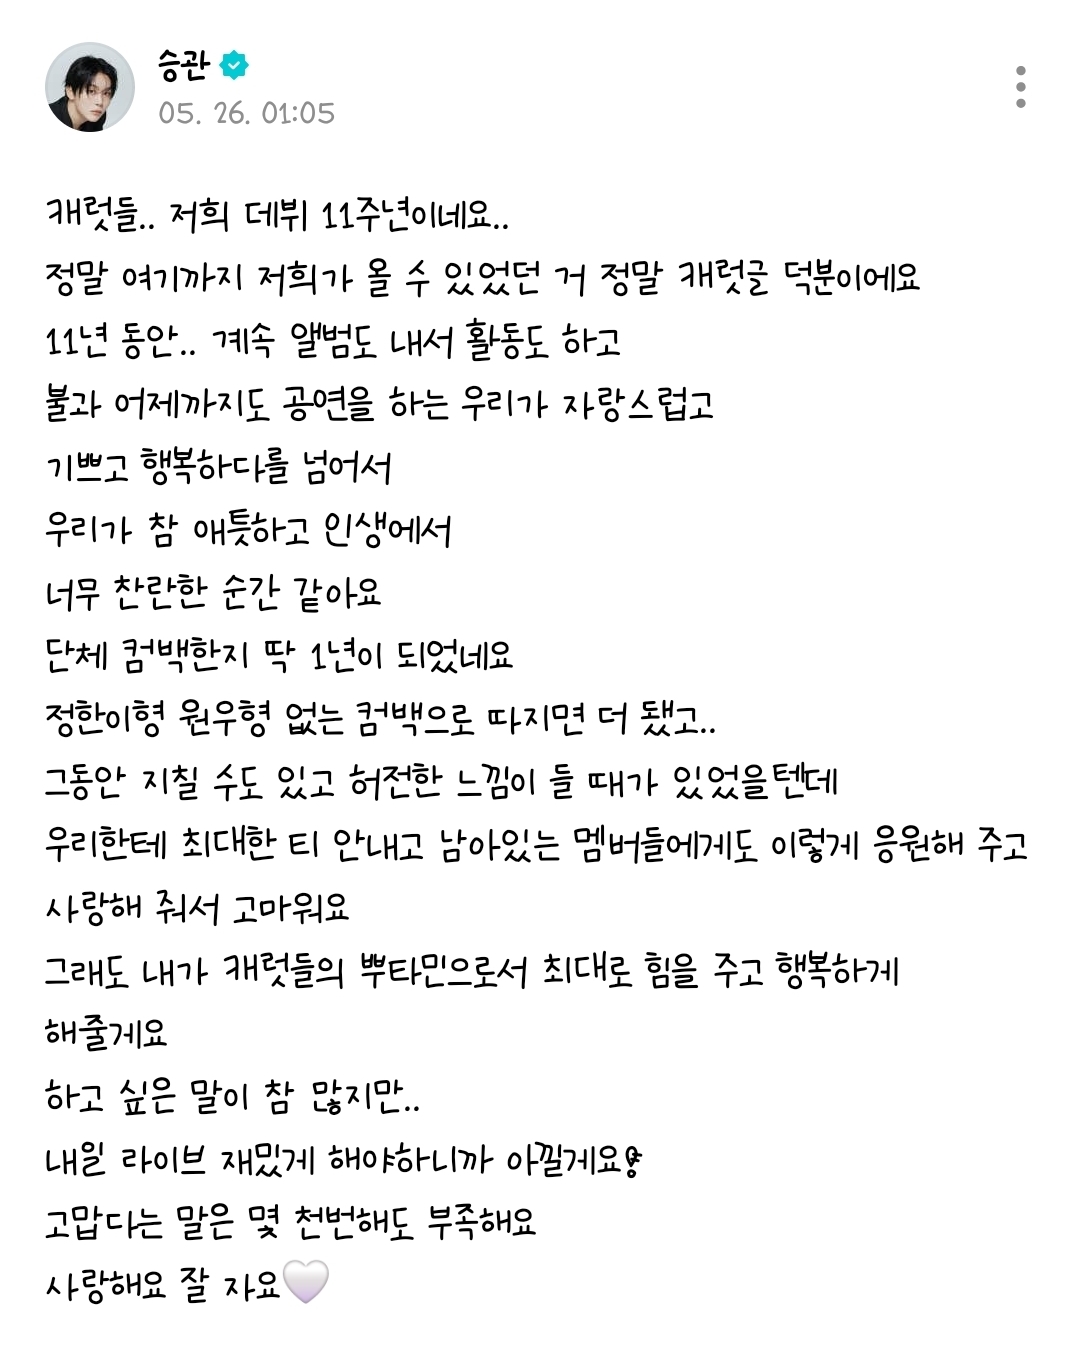 승관
05. 26. 01:05
캐럿들.. 저희 데뷔 11주년이네요..
정말 여기까지 저희가 올 수 있었던 거 정말 캐럿글 덕분이에요
11년 동안.. 계속 앨범도 내서 활동도 하고
불과 어제까지도 공연을 하는 우리가 자랑스럽고
기쁘고 행복하다를 넘어서
우리가 참 애틋하고 인생에서
너무 찬란한 순간 같아요
단체 컴백한지 딱 1년이 되었네요
정한이형 원우형 없는 컴백으로 따지면 더 됐고..
그동안 지칠 수도 있고 허전한 느낌이 들 때가 있었을텐데
우리한테 최대한 티 안내고 남아있는 멤버들에게도 이렇게 응원해 주고
사랑해 줘서 고마워요
그래도 내가 캐럿들의 뿌타민으로서 최대로 힘을 주고 행복하게
해줄게요
하고 싶은 말이 참 많지만..
내일 라이브 재밌게 해야하니까 아낄게요!
고맙다는 말은 몇 천번해도 부족해요
사랑해요 잘 자요🤍